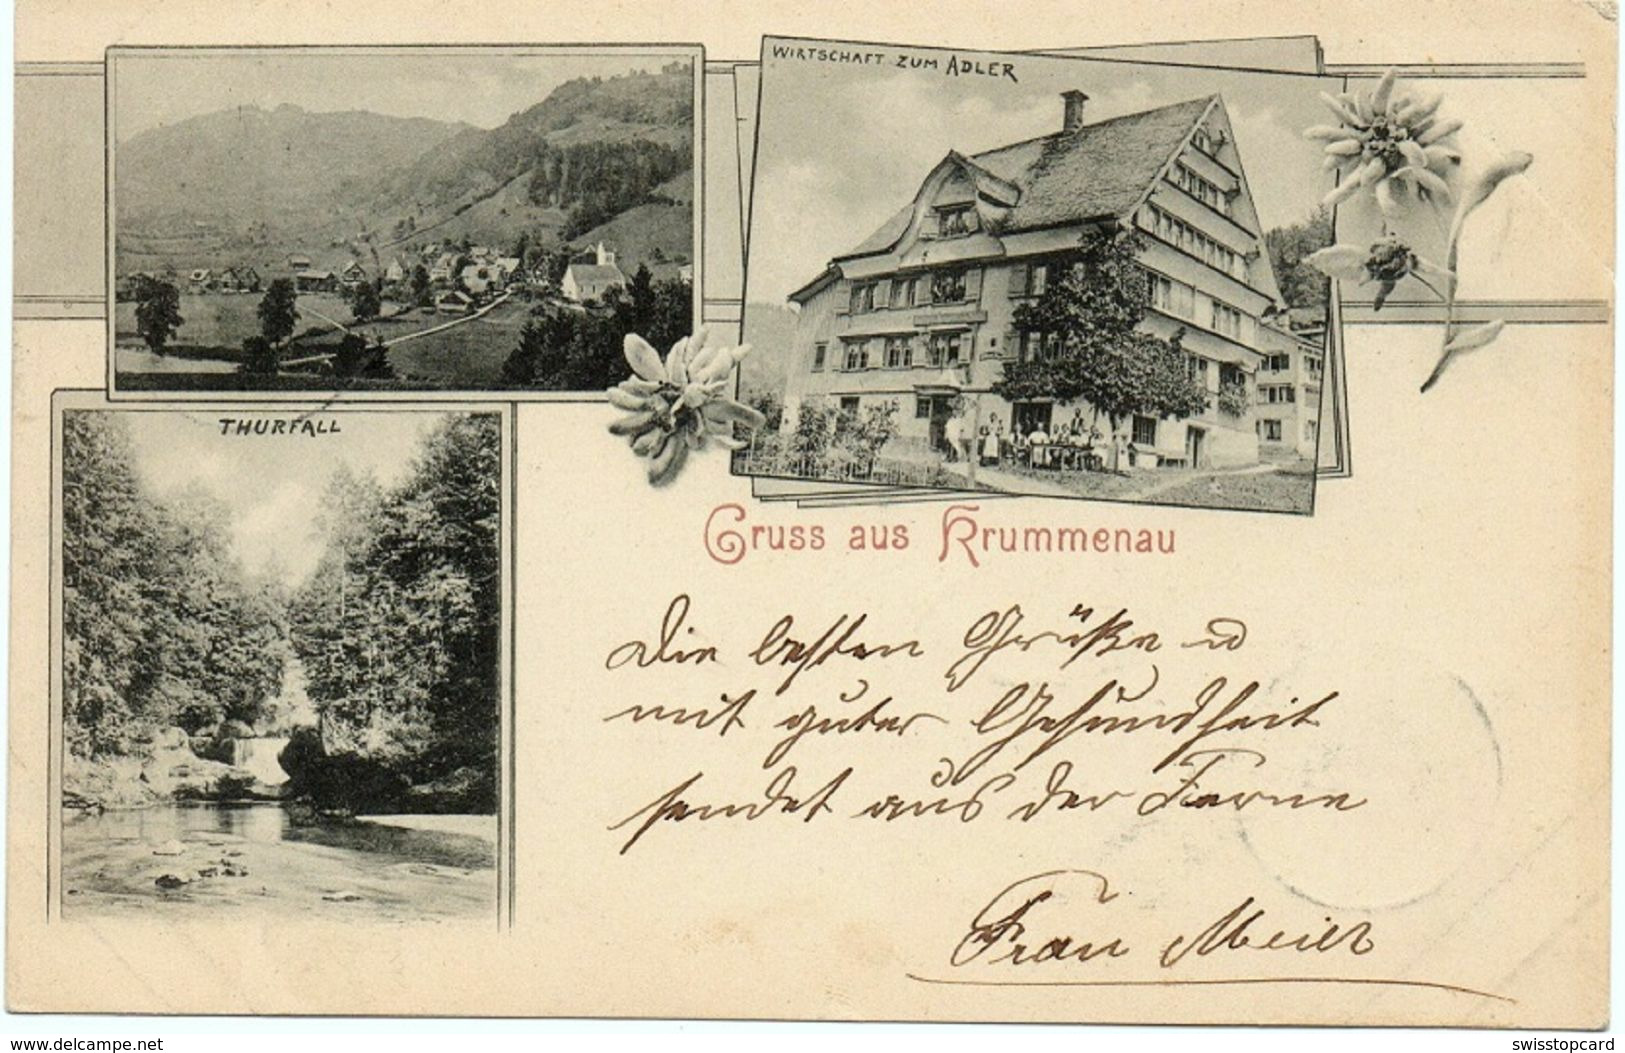 WIRTSCHAFT ZUM ADLER
THURFALL
Gruss aus Krummenau
Die besten Grüße u
mit guter Gesundheit
sendet aus der Ferne
Frau Meier
www.delcampe.net
swisstopcard